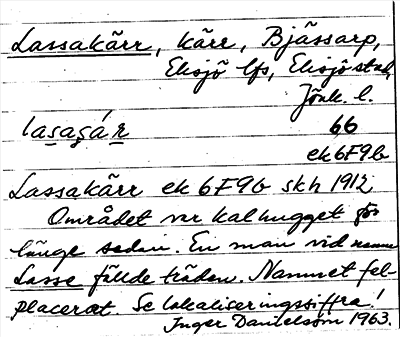 Lassakärr, kärr, Bjässarp,
Eksjö lfs, Eksjö stad,
Jönk. l.
lasagár 66
ek 6F9b
Lassakärr ek 6F9b skh 1912
Området var kalhugget för
länge sedan. En man vid namn
Lasse fällde träden. Namnet fel-
placerat. Se lokaliseringssiffra!
Inger Danielsson 1963.